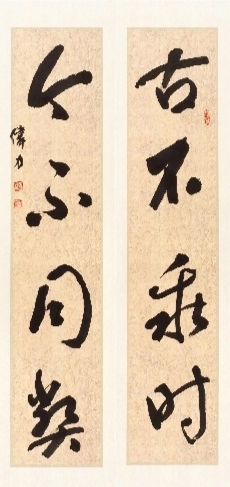 古不乖时
今不同弊
偉力